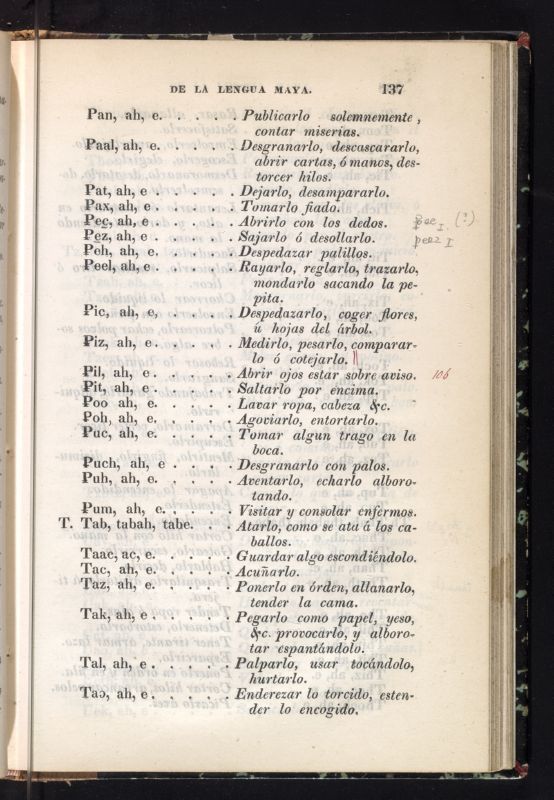 DE LA LENGUA MAYA. 137
Pan, ah, e. . . . . Publicarlo solemnemente,
contar miserias.
Paal, ah, e. . . . . Desgranarlo, descascararlo,
abrir cartas, ó manos, des-
torcer hilos.
Pat, ah, e . . . . . Dejarlo, desampararlo.
Pax, ah, e . . . . . Tomarlo fiado.
Pec, ah, e . . . . . Abrirlo con los dedos.
Pez, ah, e . . . . . Sajarlo ó desollarlo.
Peh, ah, e. . . . . Despedazar palillos.
Peel, ah, e . . . . . Rayarlo, reglarlo, trazarlo,
mondarlo sacando la pe-
pita.
Pic, ah, e, . . . . . Despedazarlo, coger flores,
ú hojas del árbol.
Piz, ah, e. . . . . . Medirlo, pesarlo, comparar-
lo ó cotejarlo. ||
Pil, ah, e. . . . . . Abrir ojos estar sobre aviso. 106
Pit, ah, e. . . . . . Saltarlo por encima.
Poo ah, e. . . . . . Lavar ropa, cabeza &c.
Poh, ah, e. . . . . Agoviarlo, entortarlo.
Puc, ah, e. . . . . Tomar algun trago en la
boca.
Puch, ah, e . . . . Desgranarlo con palos.
Puh, ah, e. . . . . Aventarlo, echarlo alboro-
tando.
Pum, ah, e. . . . . Visitar y consolar enfermos.
T. Tab, tabah, tabe. . . Atarlo, como se ata á los ca-
ballos.
Taac, ac, e. . . . . Guardar algo escondiéndolo.
Tac, ah, e. . . . . Acuñarlo.
Taz, ah, e. . . . . Ponerlo en órden, allanarlo,
tender la cama.
Tak, ah, e . . . . . Pegarlo como papel, yeso,
&c. provocarlo, y alboro-
tar espantándolo.
Tal, ah, e . . . . . Palparlo, usar tocándolo,
hurtarlo.
Taɔ, ah, e . . . . . Enderezar lo torcido, esten-
der lo encogido.